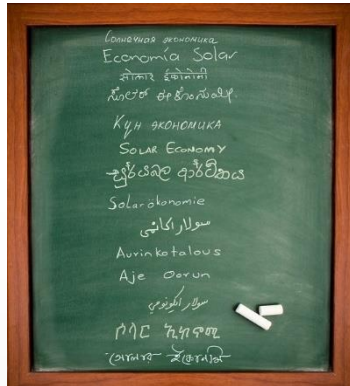 Солнечная экономика
Economía Solar
सोलार ईकोनोमी
ಸೋಲಾರ್
Күн экономика
SOLAR ECONOMY
සූර්යබල ආර්ථිකය
Solarökonomie
سولار اکانمی
Aurinkotalous
Aje Oorun
سولار اکونومی
ሶላር ኢኮኖሚ
সোলার ইকোনমি